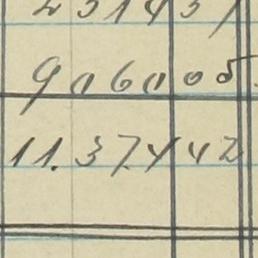 231437
906005
11.37.442